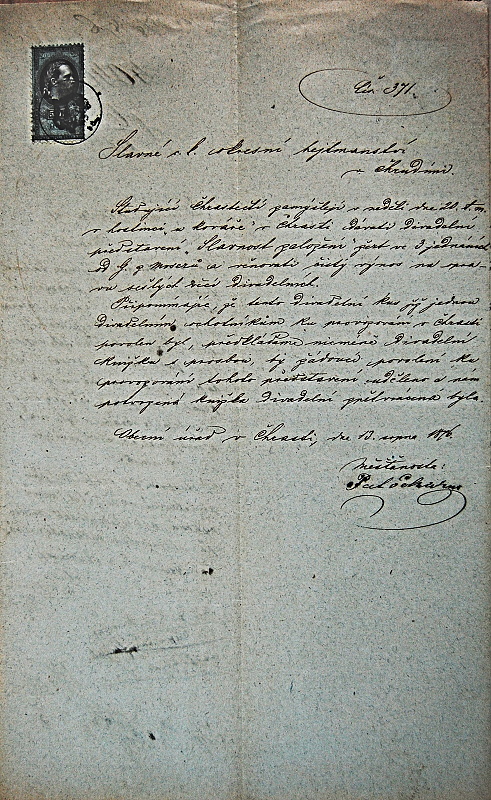 Čís. 371.
Slavné c. k. okresní hejtmanství
v Chrudimi.
Studující Chrastečtí pamýšlejí v neděli dne 20. t. m.
v hostinci u kováře v Chrasti dávati divadelní
představení "Slavnost položení ve 3 jednáních
od G. p. Mosera a věnovati čistý výnos na
sešlých věcí divadelních.
Připomínajíc, že tento divadelní kus již jednou
divadelním ochotníkům ku provozování v Chrasti
povolen byl, předkládáme nicméně divadelní
knížku s prosbou, by žádoucí povolení ku
provozování tohoto představení uděleno a nám
potvrzená knížka divadelní byla.
Obecní úřad v Chrasti, dne 13. srpna 1876.
Měšťanosta: